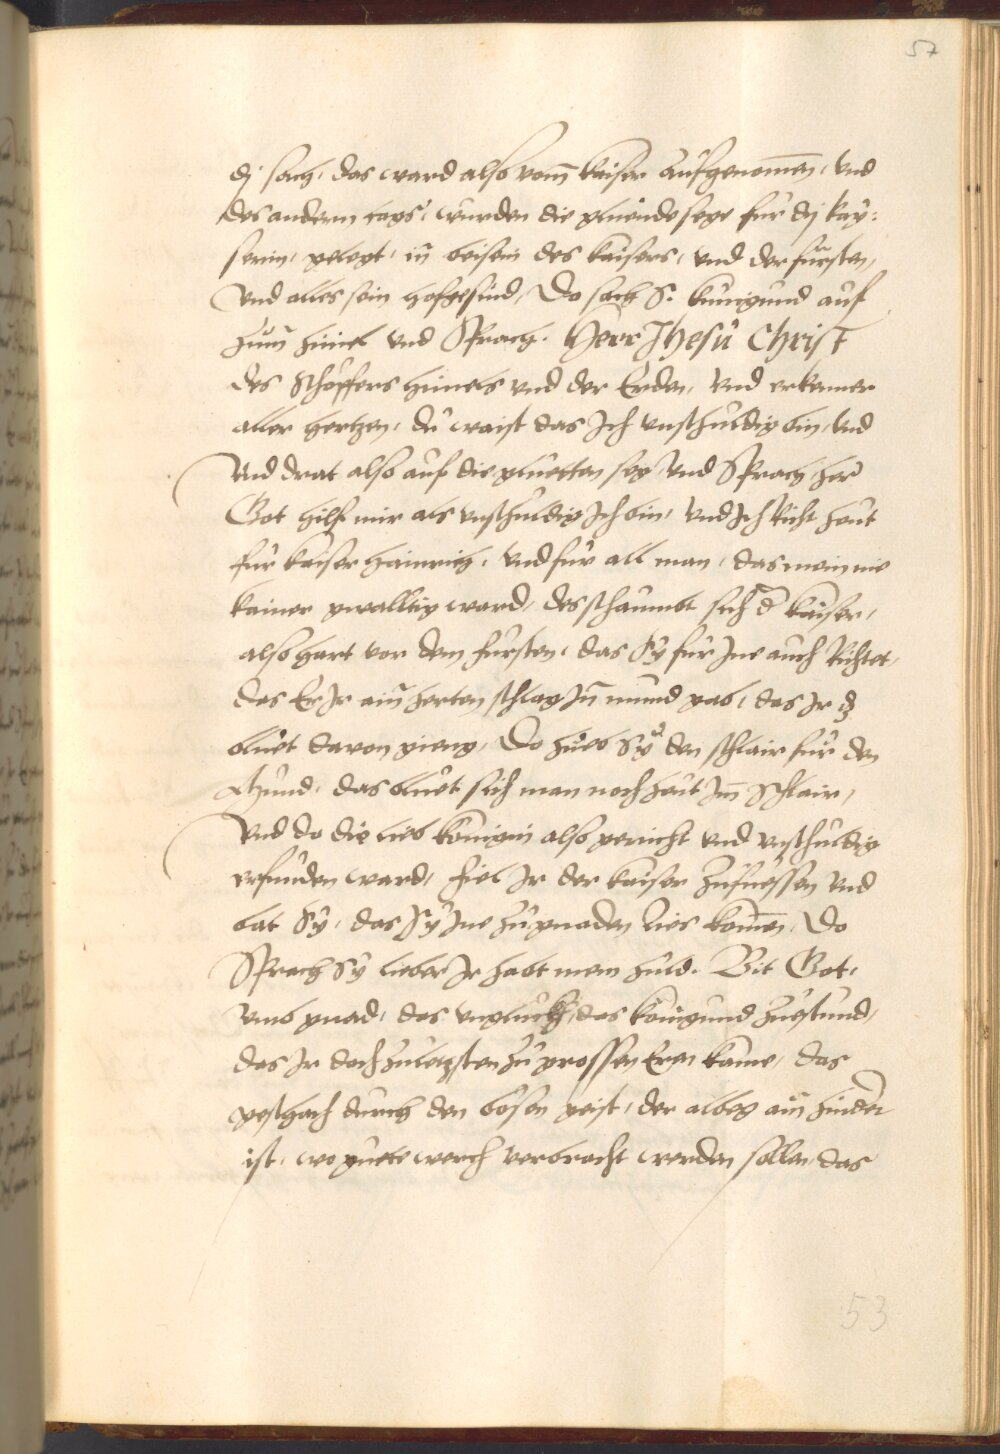 57
dj sach, das ward also vom̄ kaiser aufgenomen̄, vnd
des andernn tags, wurden die gluende sege fur dj kay-
serin, gelegt, in̄ beisein des kaisers, vnd der fursten,
vnd alles sein hofgesind, Do sach S. kunigund auf
zum̄ himel vnd Sprach. Herr Jhesu Christ
des Schopffers himels vnd der Erden, vnd erkenner
aller hertzen, du waist das Jch vnschuldig bin, vnd
vnd drat also auf die gluetten seg vnd Sprach, her
Got hilf mir als vnschuldig Jch bin, vnd Jch Richt heut
fur kaiser hainrich, vnd fur all man, das mein nie
kainer gwalltig ward, des schaumbt sich d̄ kaiser,
also hart vor dem fursten, das Sy fur Jne auch Richtet,
das Er Jr ain̄ herten schlag Jn̄ mund gab, das Jr dz
bluet davon gieng, Do hueb Sy den schlair fur den
Mund, das bluet sich man noch heut Jm̄ Schlair,
vnd do die lieb konigin also gericht vnd vnschuldig
erfunden ward, fiel Jr der kaiser zufuessen vnd
bat Sy, das Sy Jne zu gnaden lies komen̄, Do
Sprach Sy lieber Jr habt mein huld. Bit Got,
vmb gnad, das vngluckh, das konigund zustund,
das Jr doch zuletzsten zu grossen Eren kame, das
geschach durch den bosen geist, der albeg ain̄ hinder
ist, wo guete werch verbracht werden sollen, das
53